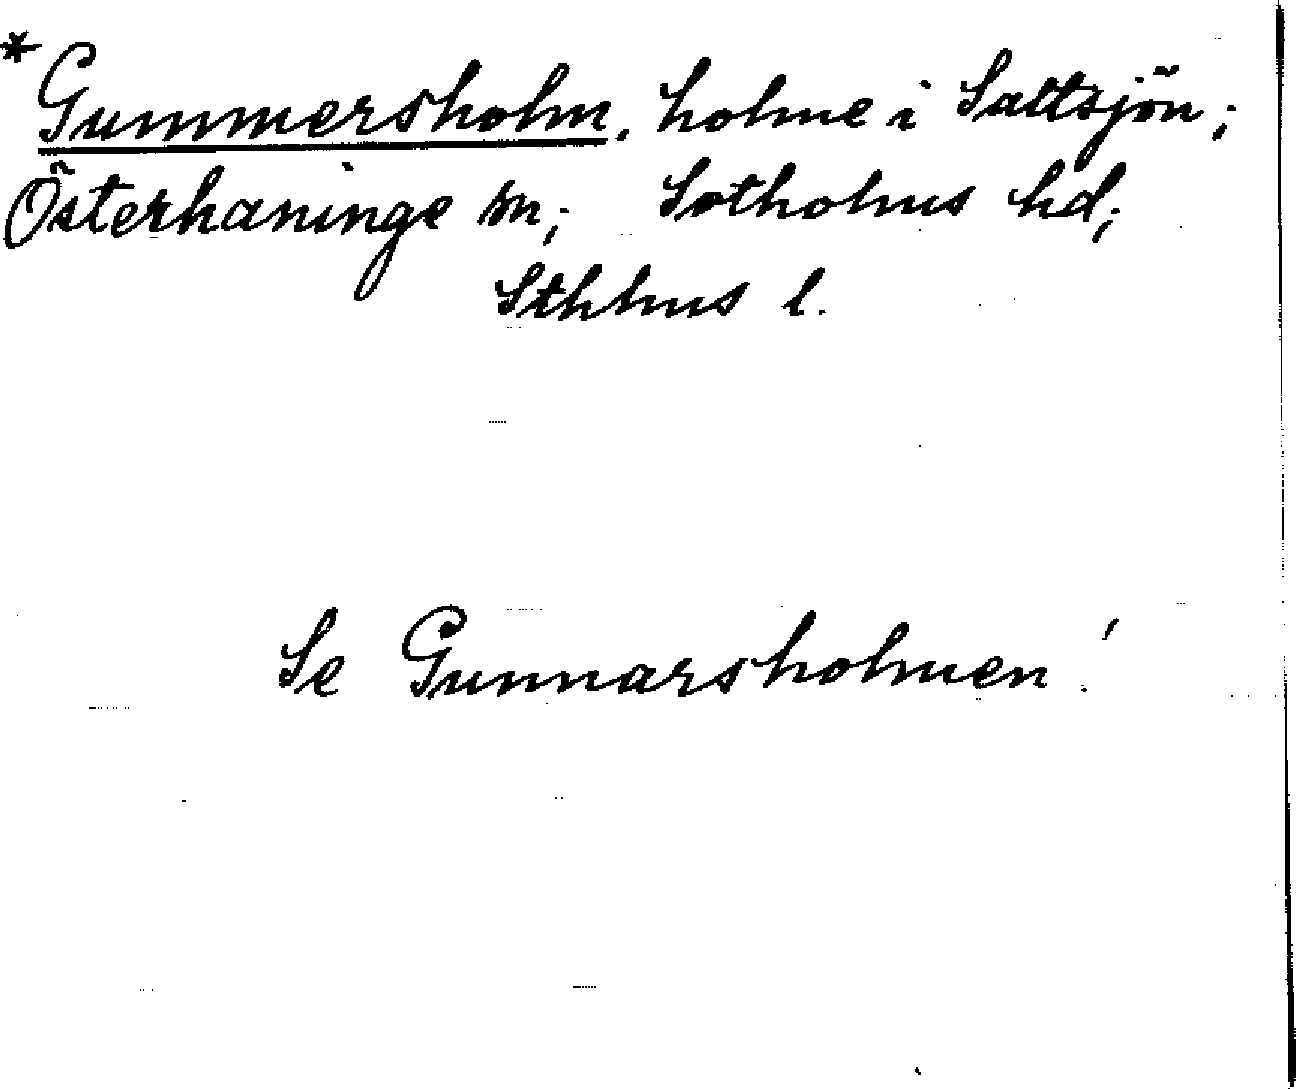 *Gummersholm, holme i Saltsjön;
Österhaninge sn; Sotholms hd;
Sthlms l.
Se Gunnarsholmen!